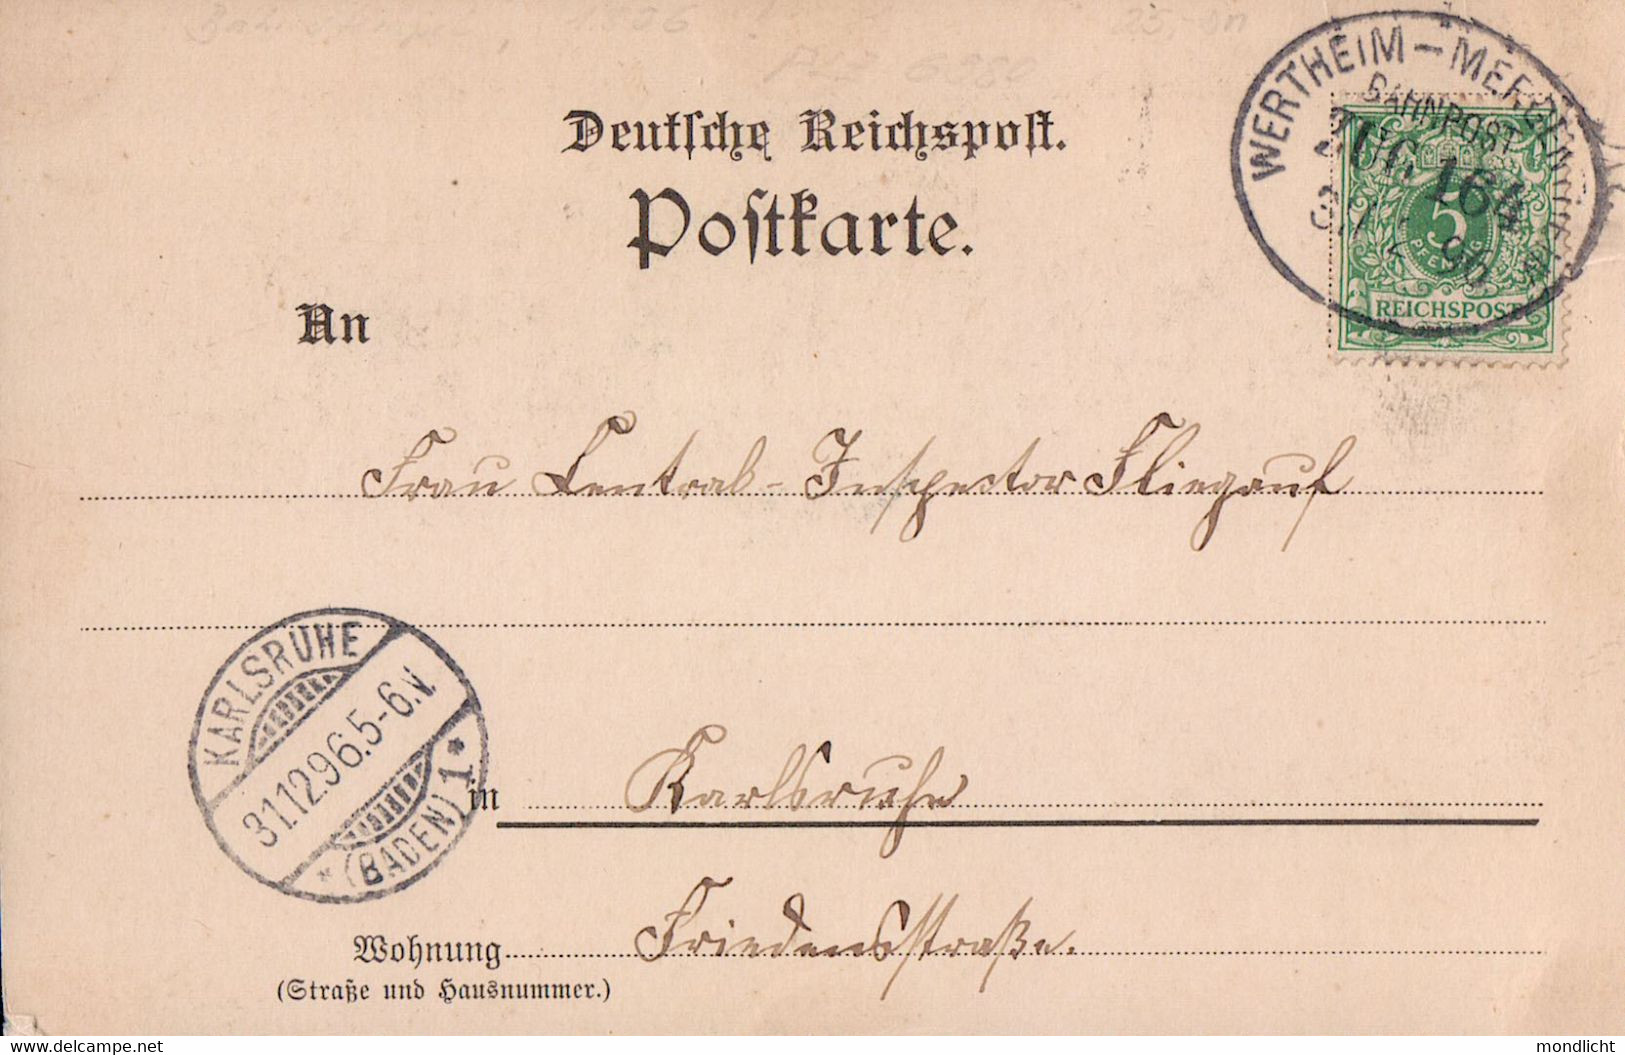 1896
Deutsche Reichspost.
Postkarte.
WERTHEIM – MERGENTHEIM
BAHNPOST
ZUG 164
5
PFENNIG
REICHSPOST
An
Frau Central-Inspector Fliegauf
KARLSRUHE
31.12.96.5-6.V.
* (BADEN) 1 *
in Karlsruhe
Wohnung Friedensstraße.
(Straße und Hausnummer.)
www.delcampe.net
mondlicht